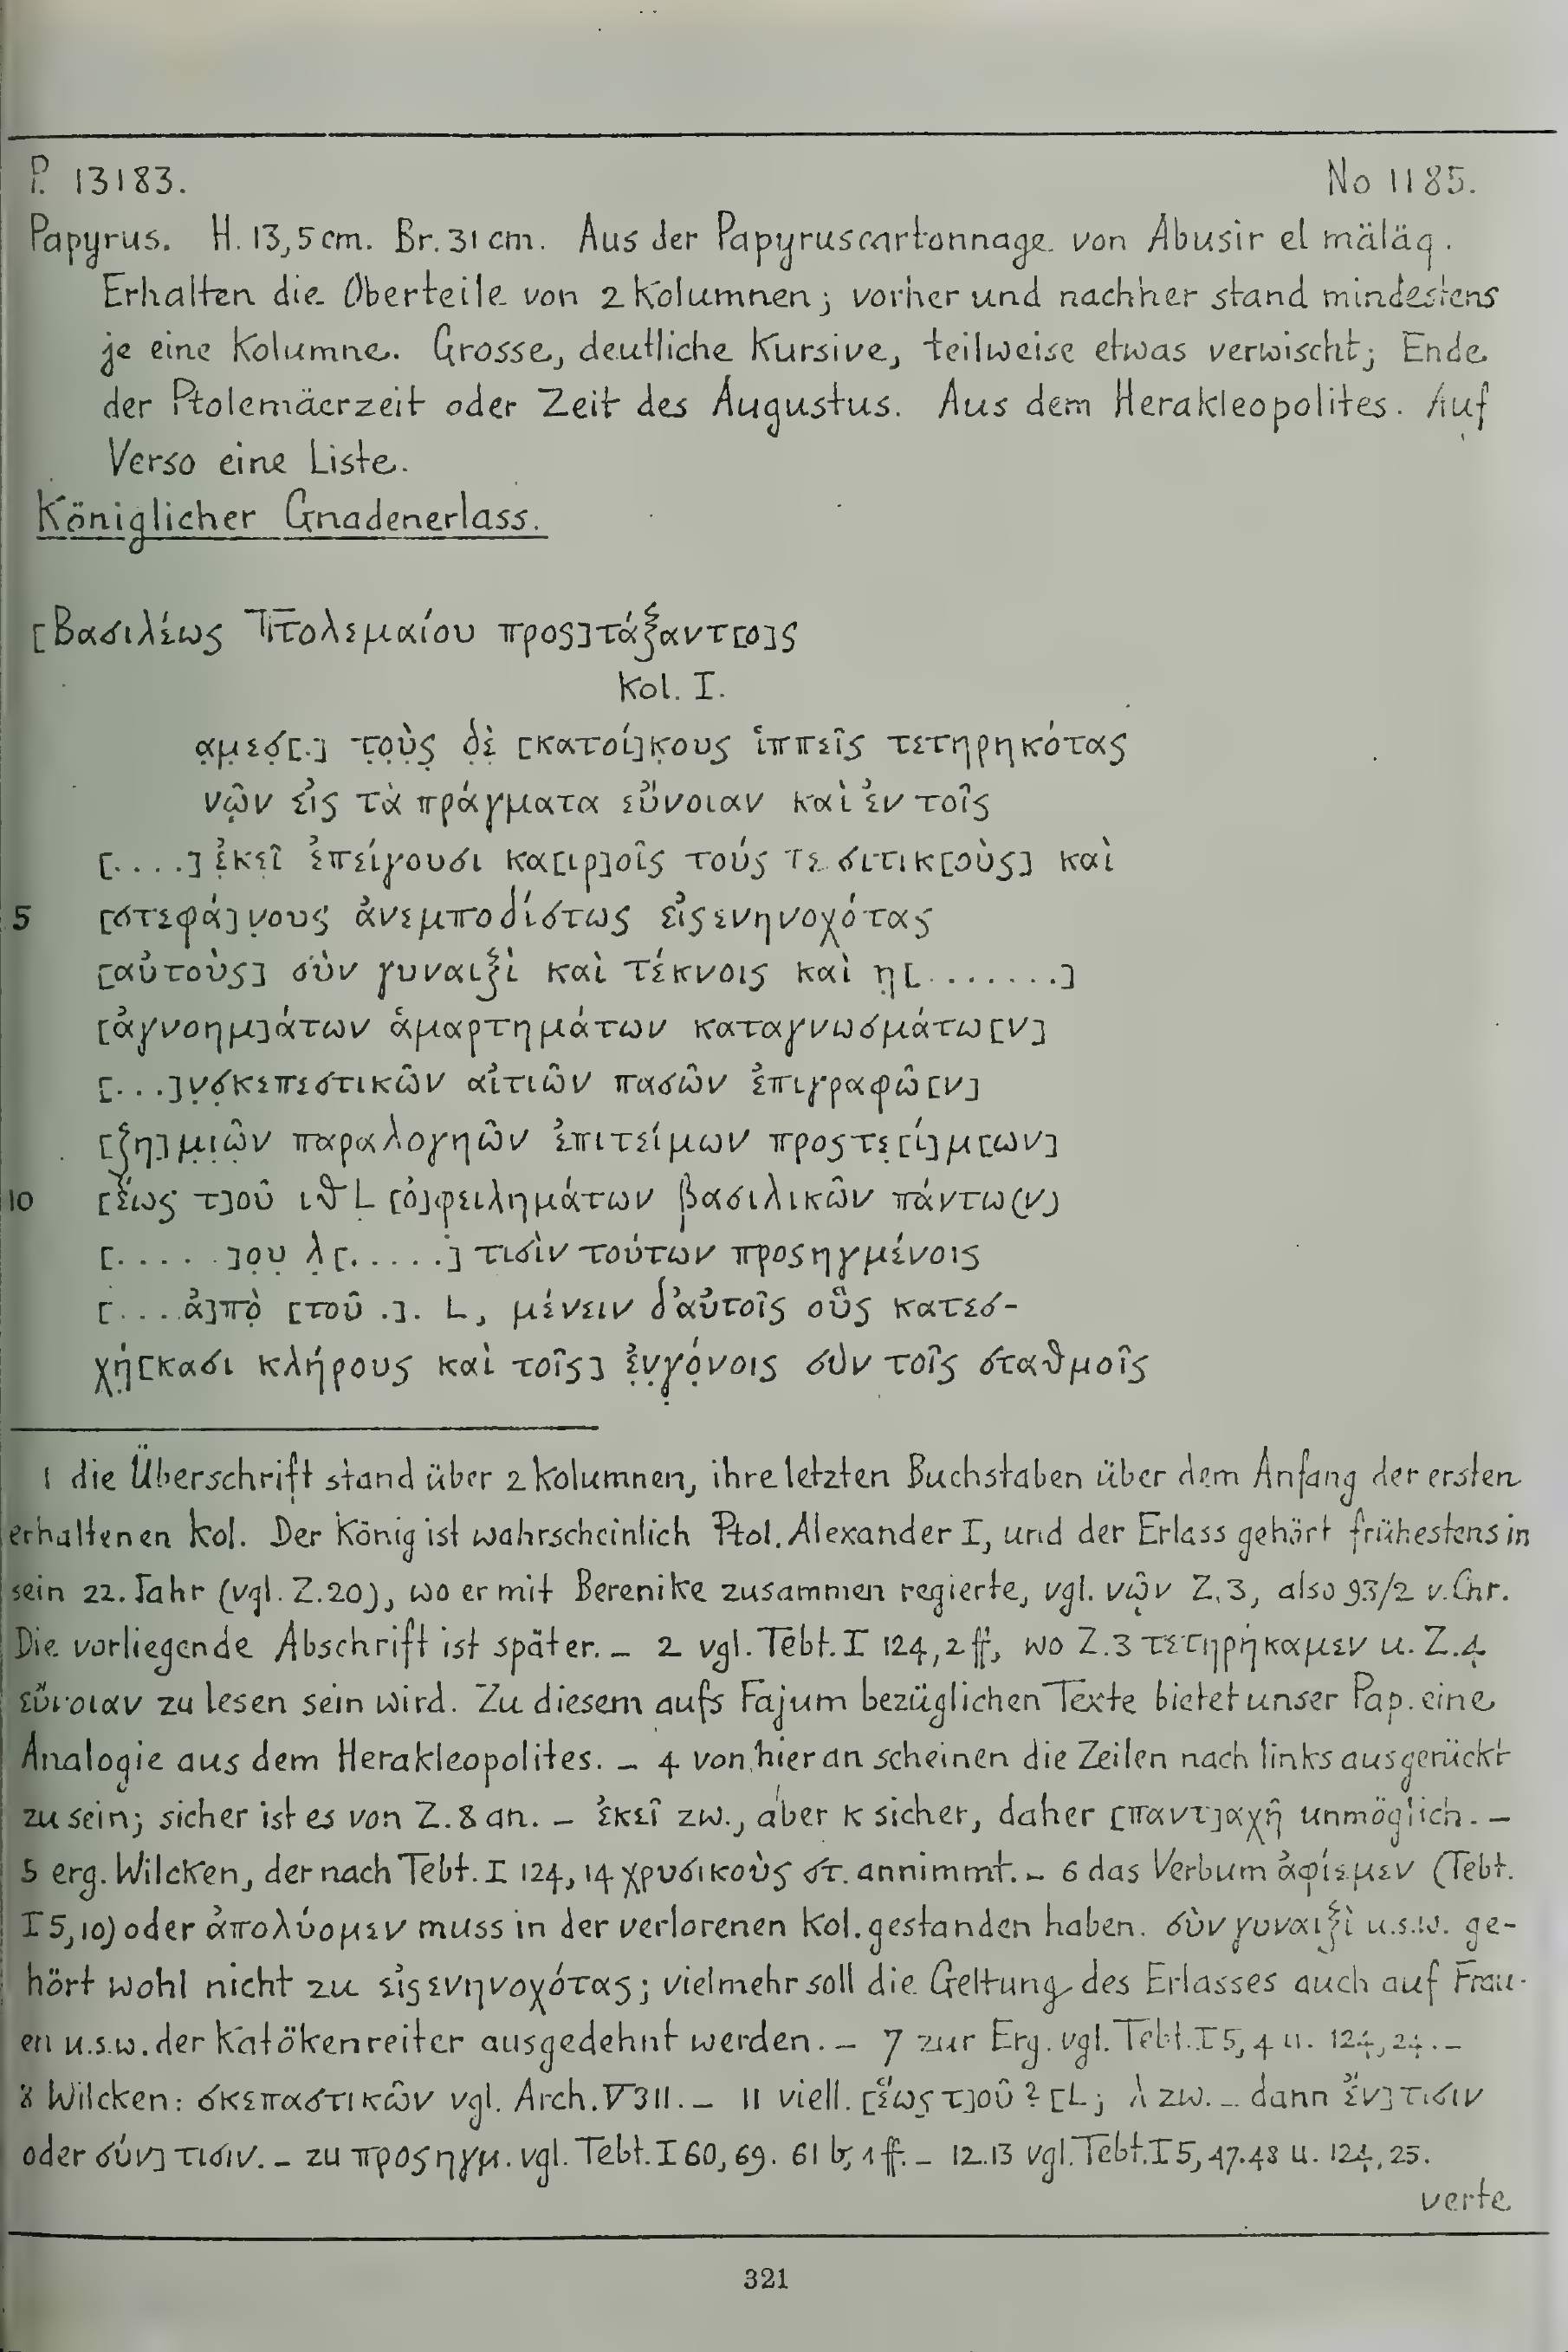 P. 13183.
No 1185.
Papyrus. H. 13,5 cm. Br. 31 cm. Aus der Papyruscartonnage von Abusir el mäläq.
Erhalten die Oberteile von 2 Kolumnen; vorher und nachher stand mindestens
je eine Kolumne. Grosse, deutliche Kursive, teilweise etwas verwischt; Ende
der Ptolemäerzeit oder Zeit des Augustus. Aus dem Herakleopolites. Auf
Verso eine Liste.
Königlicher Gnadenerlass.
[Βασιλέως Πτολεμαίου προς]τάξαντ[ο]ς
Kol. I.
α̣μ̣ε̣σ̣[.] τ̣ο̣ὺ̣ς̣ δ̣ὲ̣ [κατοί]κ̣ους ἱππεῖς τετηρηκότας
νῶ̣ν εἰς τὰ πράγματα εὔνοιαν καὶ ἐν τοῖς
[....] ἐ̣κε̣ῖ ἐπείγουσι κα[ιρ]οῖς τούς τε σιτικ[οὺς] καὶ
5 [στεφά]ν̣ους ἀνεμποδίστως εἰςενηνοχότας
[αὐτοὺς] σὺν γυναιξὶ καὶ τέκνοις καὶ η̣[.......]
[ἀγνοημ]άτων ἁμαρτημάτων καταγνωσμάτω[ν]
[...]ν̣σ̣κεπεστικῶν αἰτιῶν πασῶν ἐπιγραφῶ[ν]
[ζη]μ̣ι̣ῶ̣ν παραλογηῶν ἐπιτείμων προςτε̣[ί]μ[ων]
10 [ἕως τ]οῦ ιθ L [ὀ]φειλημάτων βασιλικῶν πάντω(ν)
[......]ο̣υ̣ λ̣[.....] τισὶν τούτων προςηγμένοις
[....ἀ]πὸ̣ [τοῦ .]. L, μένειν δ'αὐτοῖς οὓς κατεσ-
χή̣[κασι κλήρους καὶ τοῖς] ἐ̣ν̣γό̣νοις σὺν τοῖς σταθμοῖς
1 die Überschrift stand über 2 Kolumnen, ihre letzten Buchstaben über dem Anfang der ersten
erhaltenen Kol. Der König ist wahrscheinlich Ptol. Alexander I, und der Erlass gehört frühestens in
sein 22. Jahr (vgl. Z.20), wo er mit Berenike zusammen regierte, vgl. νῶ̣ν Z.3, also 93/2 v.Chr.
Die vorliegende Abschrift ist später. – 2 vgl. Tebt. I 124,2 ff, wo Z.3 τετηρήκαμεν u. Z.4
εὔνοιαν zu lesen sein wird. Zu diesem aufs Fajum bezüglichen Texte bietet unser Pap. eine
Analogie aus dem Herakleopolites. – 4 von hier an scheinen die Zeilen nach links ausgerückt
zu sein; sicher ist es von Z. 8 an. – ἐκεῖ zw., aber κ sicher, daher [παντ]αχῆ unmöglich. –
5 erg. Wilcken, der nach Tebt. I 124, 14 χρυσικοὺς στ. annimmt. – 6 das Verbum ἀφίεμεν (Tebt.
I 5,10) oder ἀπολύομεν muss in der verlorenen Kol. gestanden haben. σὺν γυναιξὶ u.s.w. ge-
hört wohl nicht zu εἰςενηνοχότας; vielmehr soll die Geltung des Erlasses auch auf Frau-
en u.s.w. der Katökenreiter ausgedehnt werden. – 7 zur Erg. vgl. Tebt. I 5,4 u. 124,24. –
8 Wilcken: σκεπαστικῶν vgl. Arch. V 311. – 11 viell. [ἕως τ]οῦ ? [L; λ zw. – dann ἔν]τισιν
oder σύν]τισιν. – zu προςηγμ. vgl. Tebt. I 60, 69. 61 b, 1 ff. – 12.13 vgl. Tebt. I 5, 47.48 u. 124, 25.
verte
321